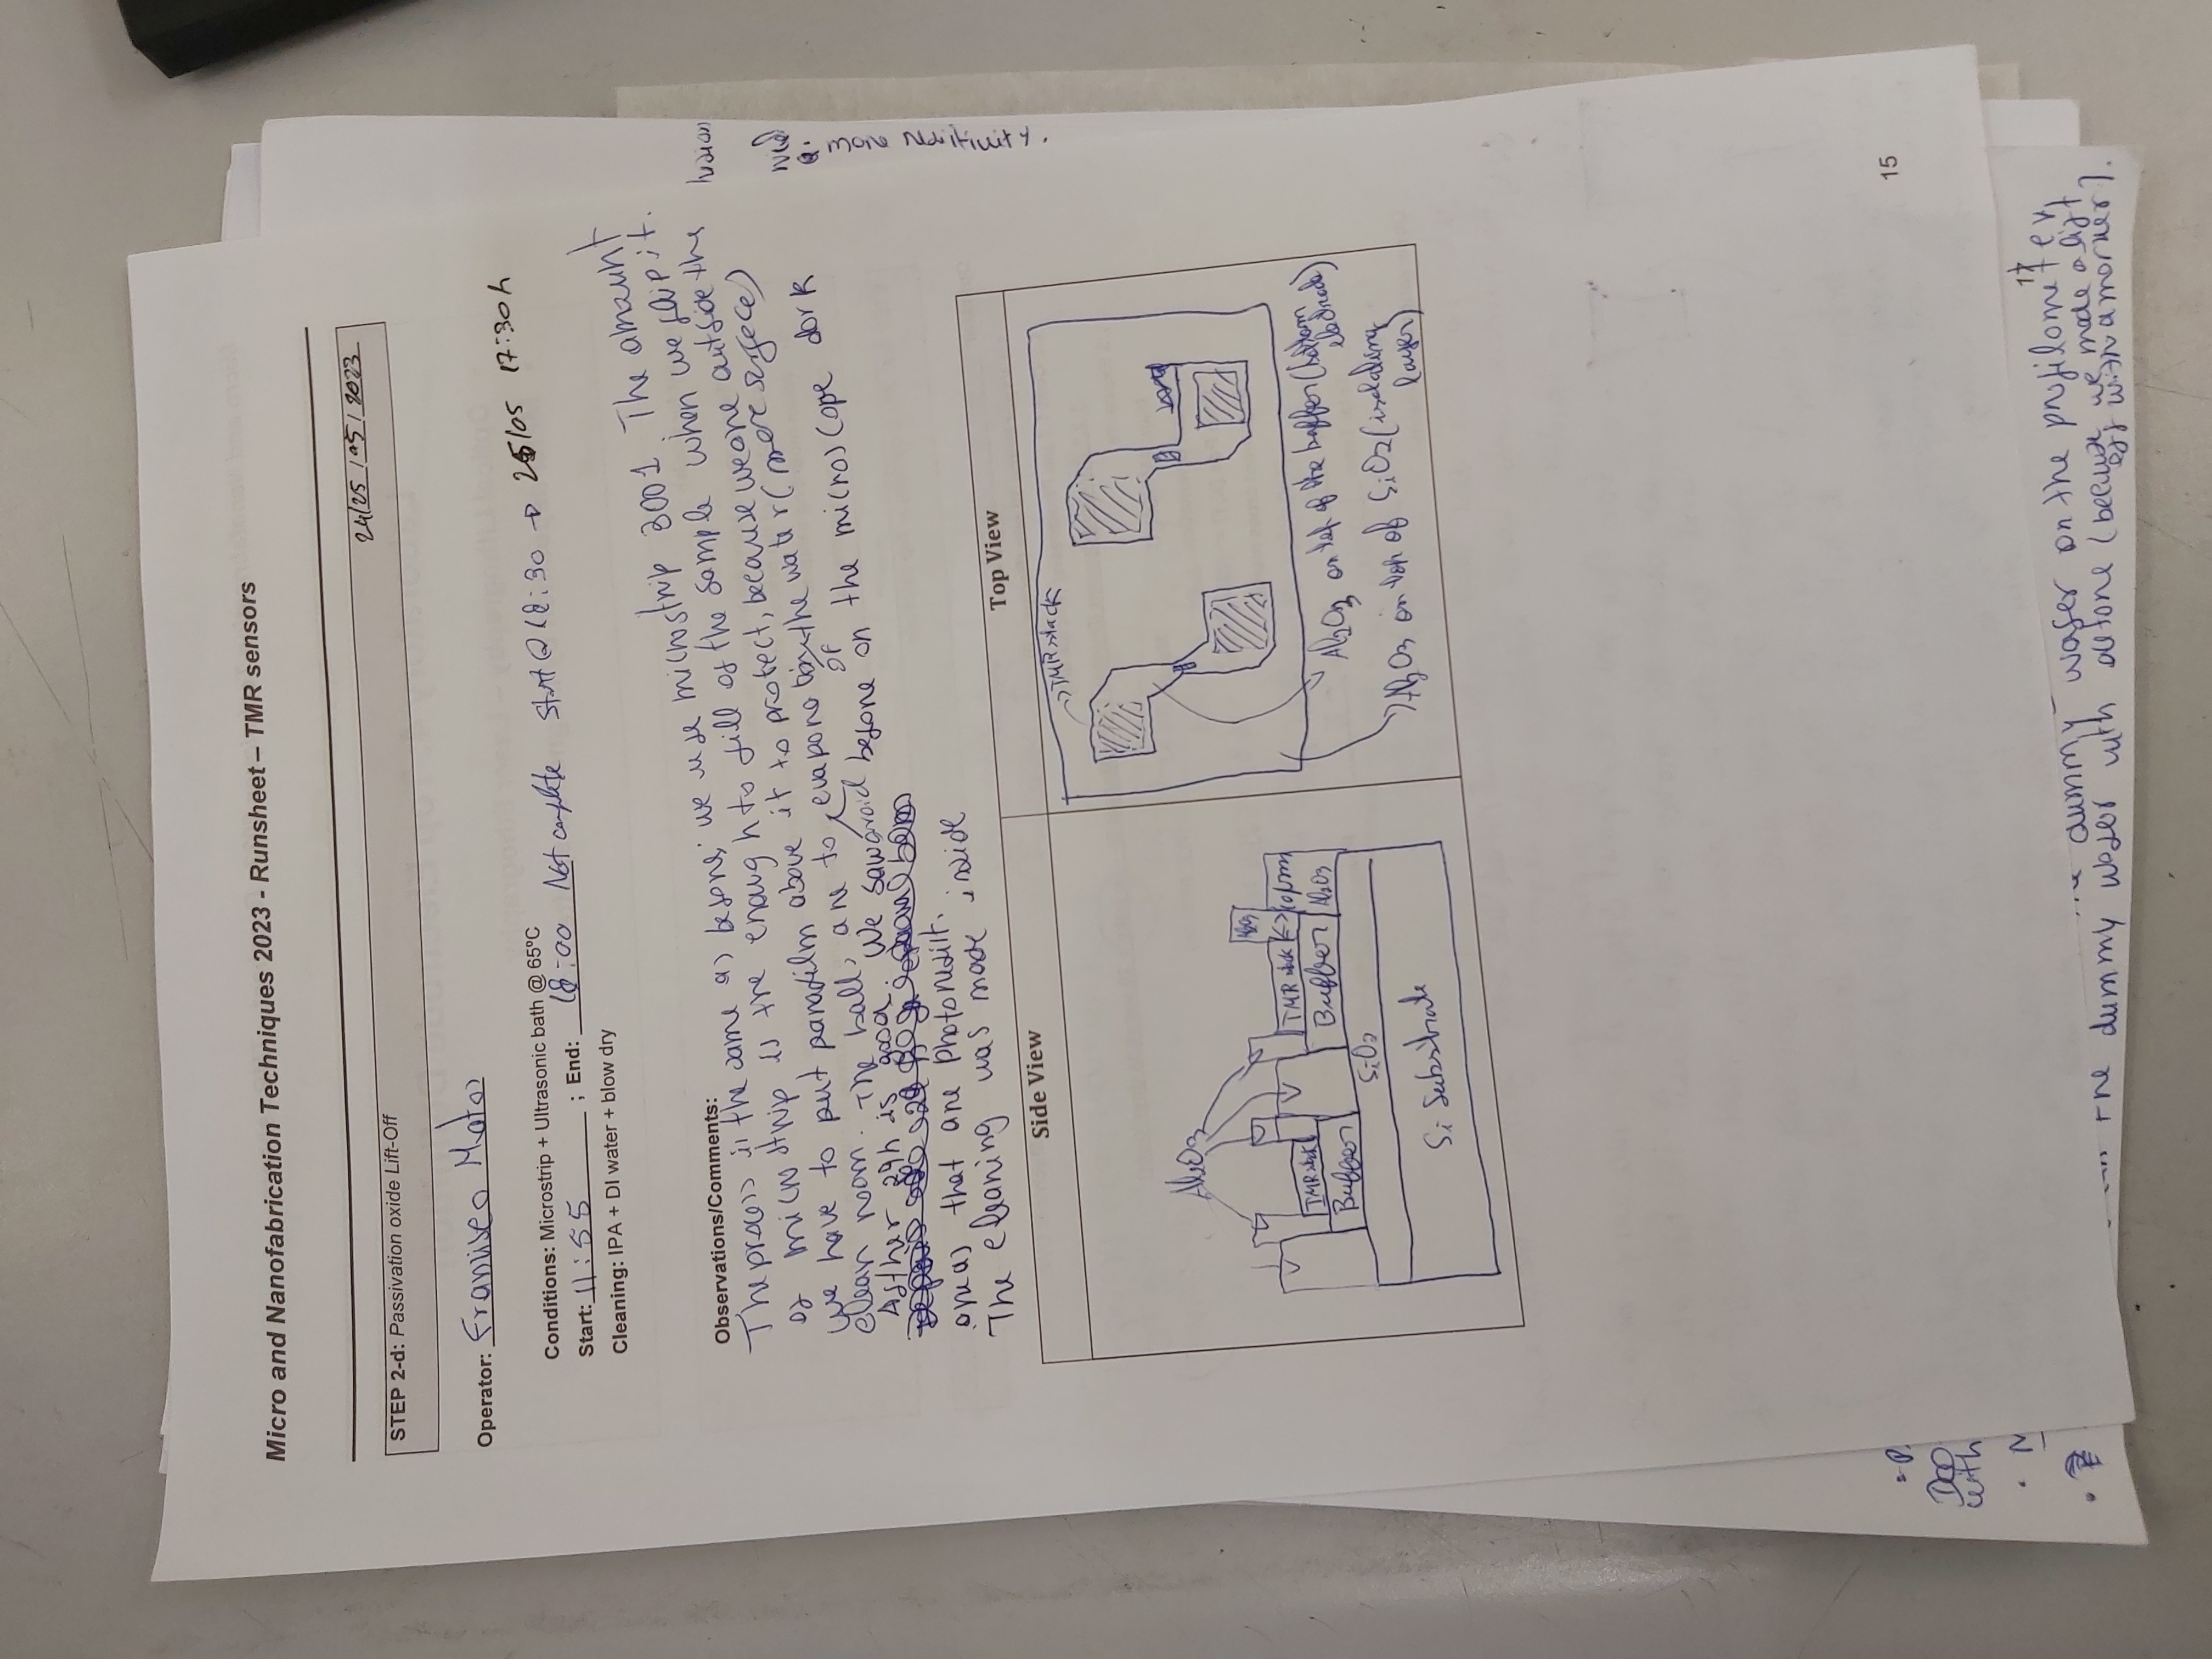 Micro and Nanofabrication Techniques 2023 - Runsheet – TMR sensors
24/25 / 05 / 2023
STEP 2-d: Passivation oxide Lift-Off
Operator: Francisco Matos
Conditions: Microstrip + Ultrasonic bath @ 65ºC
Start: 11:55 ; End: 18:00 Not complete Start @ 18:30 → 25/05 17:30h
Cleaning: IPA + DI water + blow dry
Observations/Comments:
The process is the same as before, we use microstrip 3001. The amount
of microstrip is the enough to fill of the sample when we flip it.
We have to put parafilm above it to protect, because we are outside the
clean room. The balls are to avoid evaporation of the water (more surfaces)
After 24h is good. We saw before on the microscope dark
areas that are photoresist.
The cleaning was made inside
Side View
Top View
TMR stack
Al2O3
Al2O3
TMR stack
TMR stack
10µm
Buffer
Buffer
Al2O3
SiO2
Si Substrate
Al2O3 on top of the buffer (bottom
electrode)
Al2O3 on top of SiO2 (isolating
layer)
more
15
with
17
dummy wafer on the profilometer,
the dummy wafer with (because we made a lift
off with a marker).